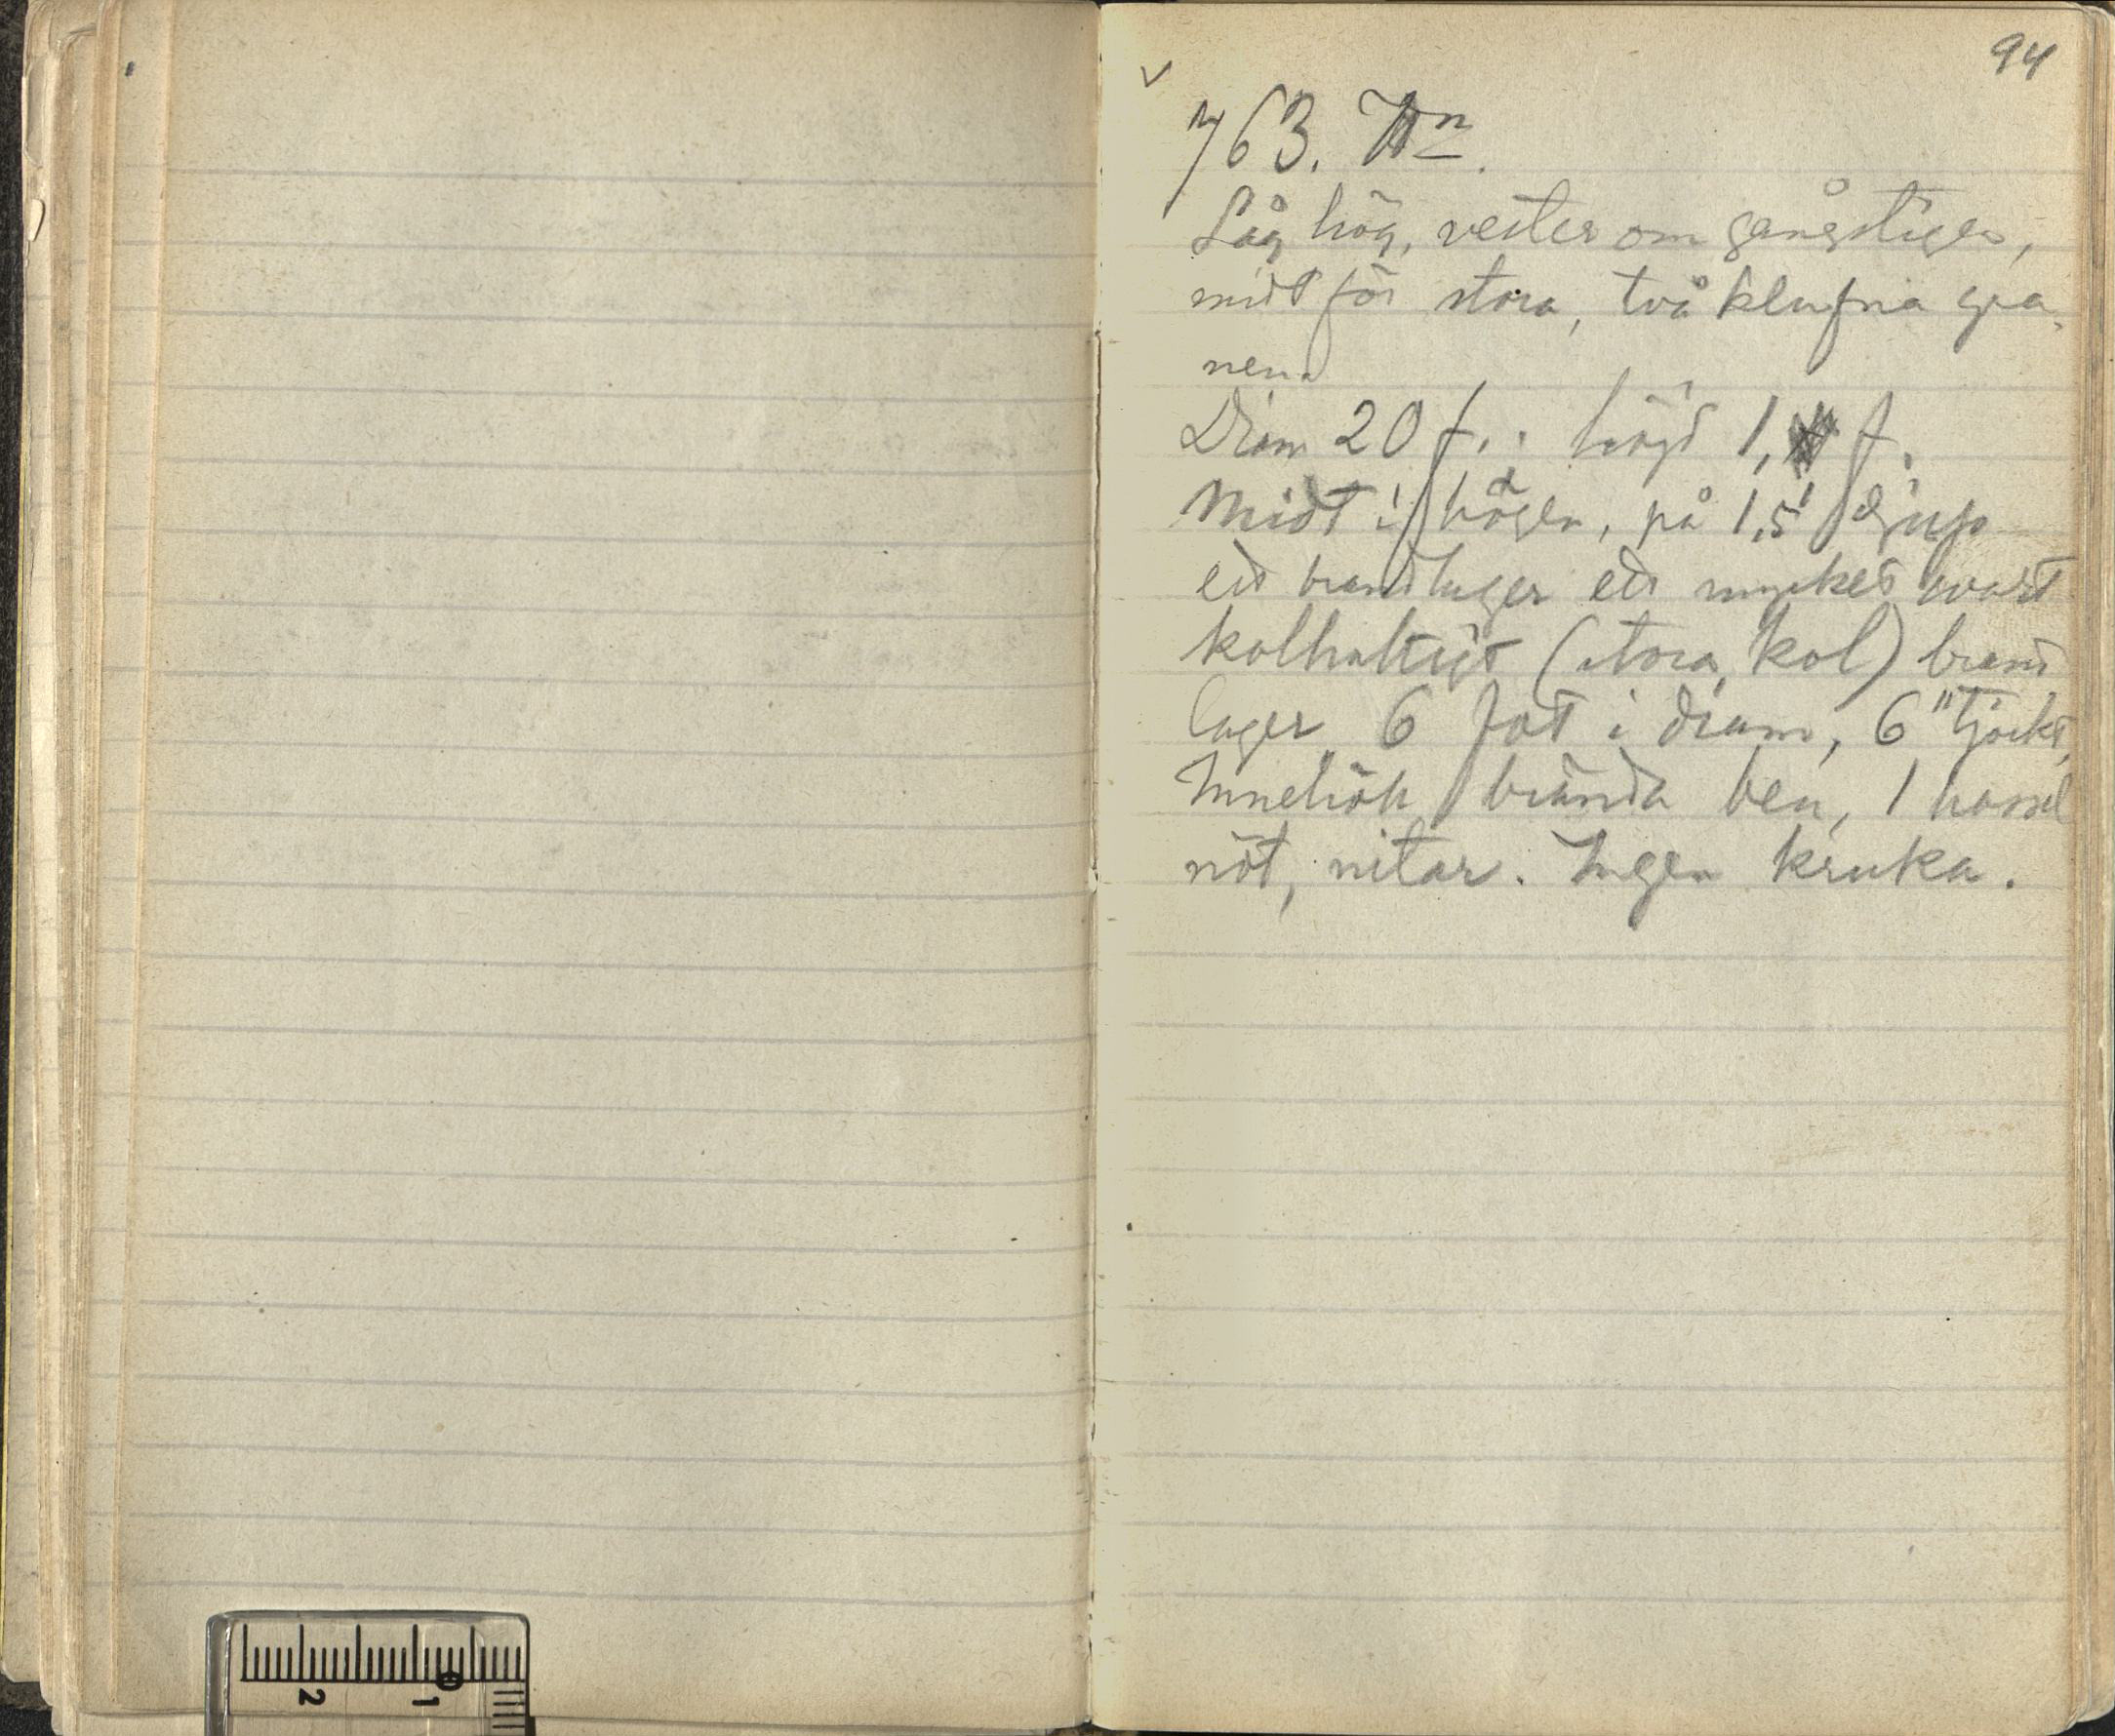 94
✓
763.
Låg hög, vester om gångstigen,
midt för stora, två klufna gra
nen.
Diam 20 f. höjd 1, f.
Midt i högen, på 1,5' djup
ett brandlager ett mycket svart
kolhaltigt (stora kol) brand
lager 6 fot i diam, 6" tjockt,
Innehöll brända ben, 1 hassel
nöt, nitar. Ingen kruka.
2 1 0